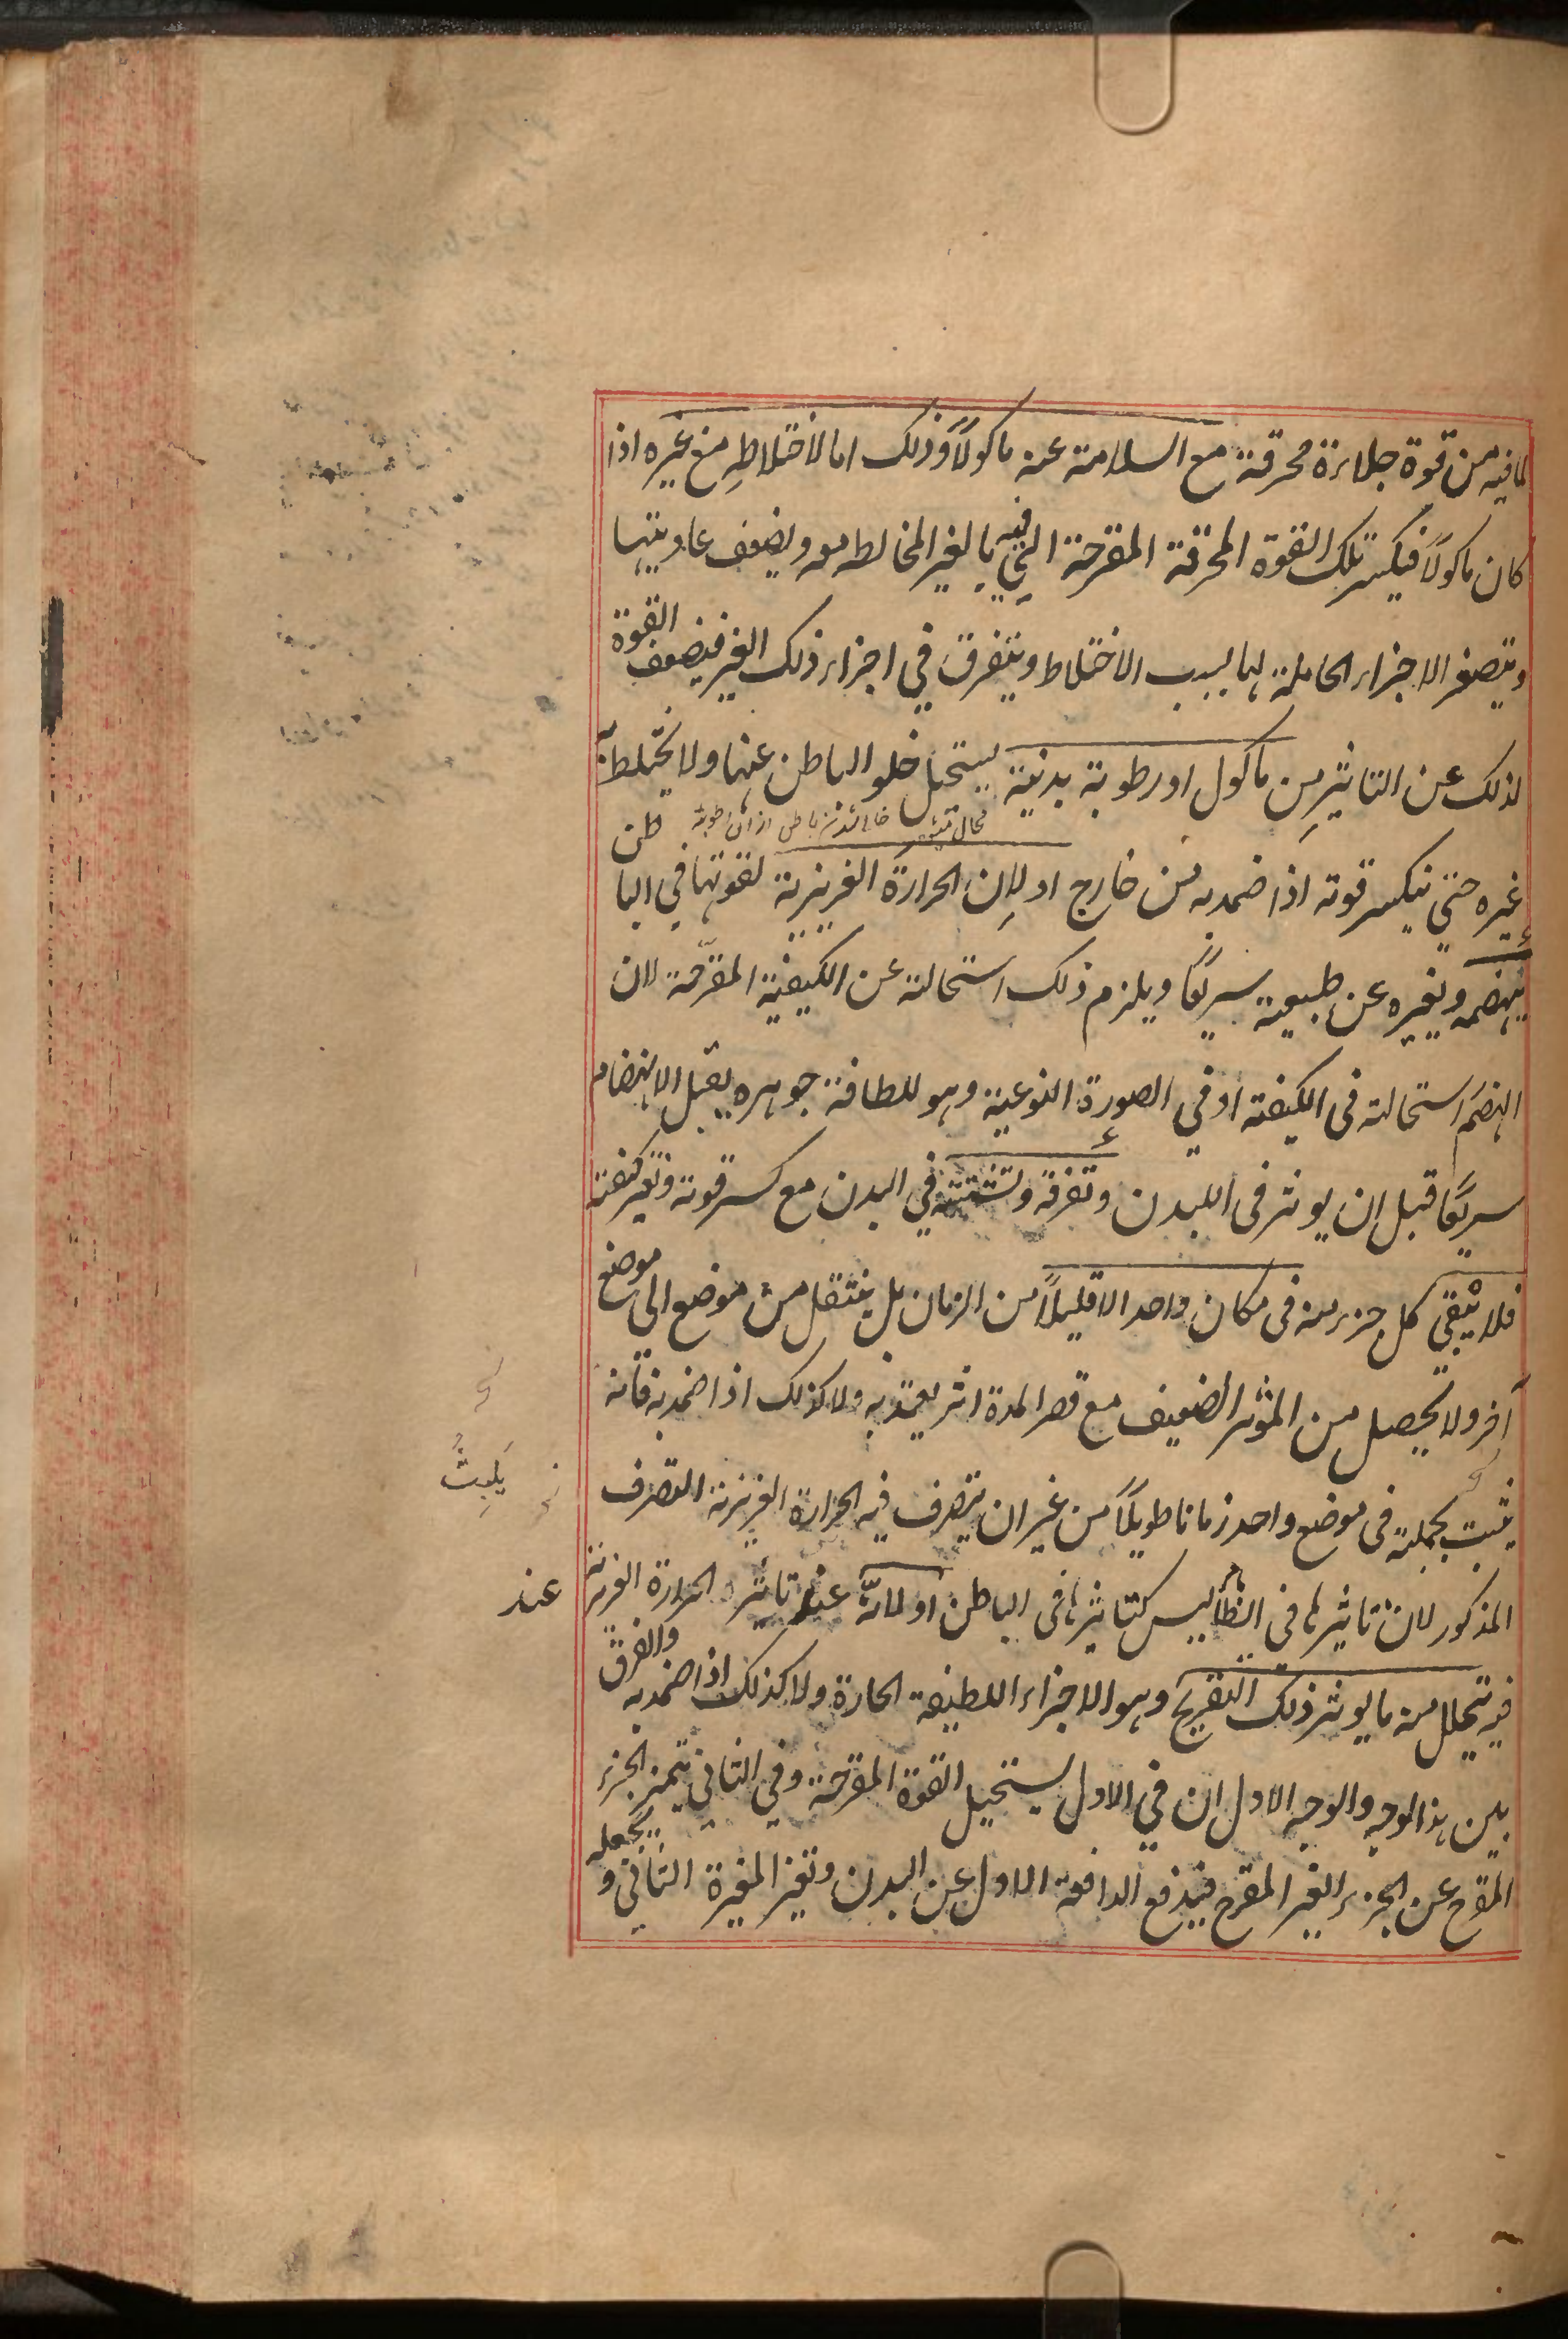 لما فيه من قوة جلاءة محرقة مع السلامة عنه ماكولاً وذلك اما لاختلاطه مع غيره اذا
كان ماكولاً فيكسر تلك القوة المحرقة المقرحة التي فيه بالغير المخالط معه ويضعف عاديتها
ويتصغر الاجزاء الحاملة لها بسبب الاختلاط ويتفرق في اجزاء ذلك الغير فيضعف القوة
لذلك عن التاثير من ماكول او رطوبة بدنية يستحيل خلو الباطن عنها ولا يختلط به
محال خالی شدن باطن از ان رطوبة
غيره حتى ينكسر قوته اذا ضمد به من خارج او لان الحرارة الغريزية لقوتها في الباطن
ينهضمه ويغيره عن طبيعته سريعًا ويلزم ذلك استحالته عن الكيفية المقرّحة لان
الهضم استحالته فى الكيفية او في الصورة النوعية وهو للطافة جوهره يقبل الانهضام
سريعًا قبل ان يوثر فى البدن وتفرقه وتشتته في البدن مع كسر قوته وتغير كيفيته
فلا يبقى كل جزء منه فى مكان واحد الا قليلاً من الزمان بل ينتقل من موضع الى موضع
آخر ولا يحصل من الموثر الضعيف مع قصر المدة اثر يعتد به ولا كذلك اذا ضمد به فانه
يثبت بجملته فى موضع واحد زمانا طويلاً من غير ان يتصرف فيه الحرارة الغريزية التصرف
يَلبِثُ
المذكور لان تاثيرها فى الظاهر ليس كتاثيرها فى الباطن او لانّه عند تاثير الحرارة الغريزية
عند
فيه يتحلل منه ما يوثر ذلك التقريح وهو الاجزاء اللطيفة الحارة ولا كذلك اذا ضمد به والفرق
بين هذا الوجه والوجه الاول ان في الاول يستحيل القوة المقرحة وفي الثاني يتميز الجزء
المقرح عن الجزء الغير المقرح فيدفع الدافعة الاول عن البدن وتغير المغيرة الثاني و يجعله